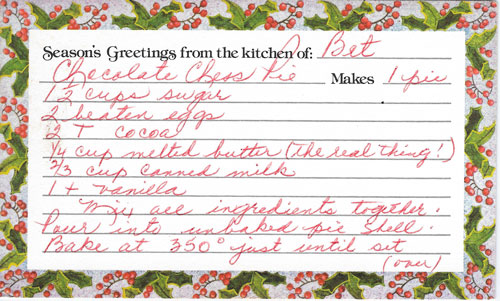 Season's Greetings from the kitchen of: Bet
Chocolate Chess Pie Makes 1 pie
1½ cups sugar
2 beaten eggs
2 T cocoa
¼ cup melted butter (The real thing!)
⅔ cup canned milk
1 t vanilla
Mix all ingredients together.
Pour into unbaked pie shell.
Bake at 350° just until set
(over)